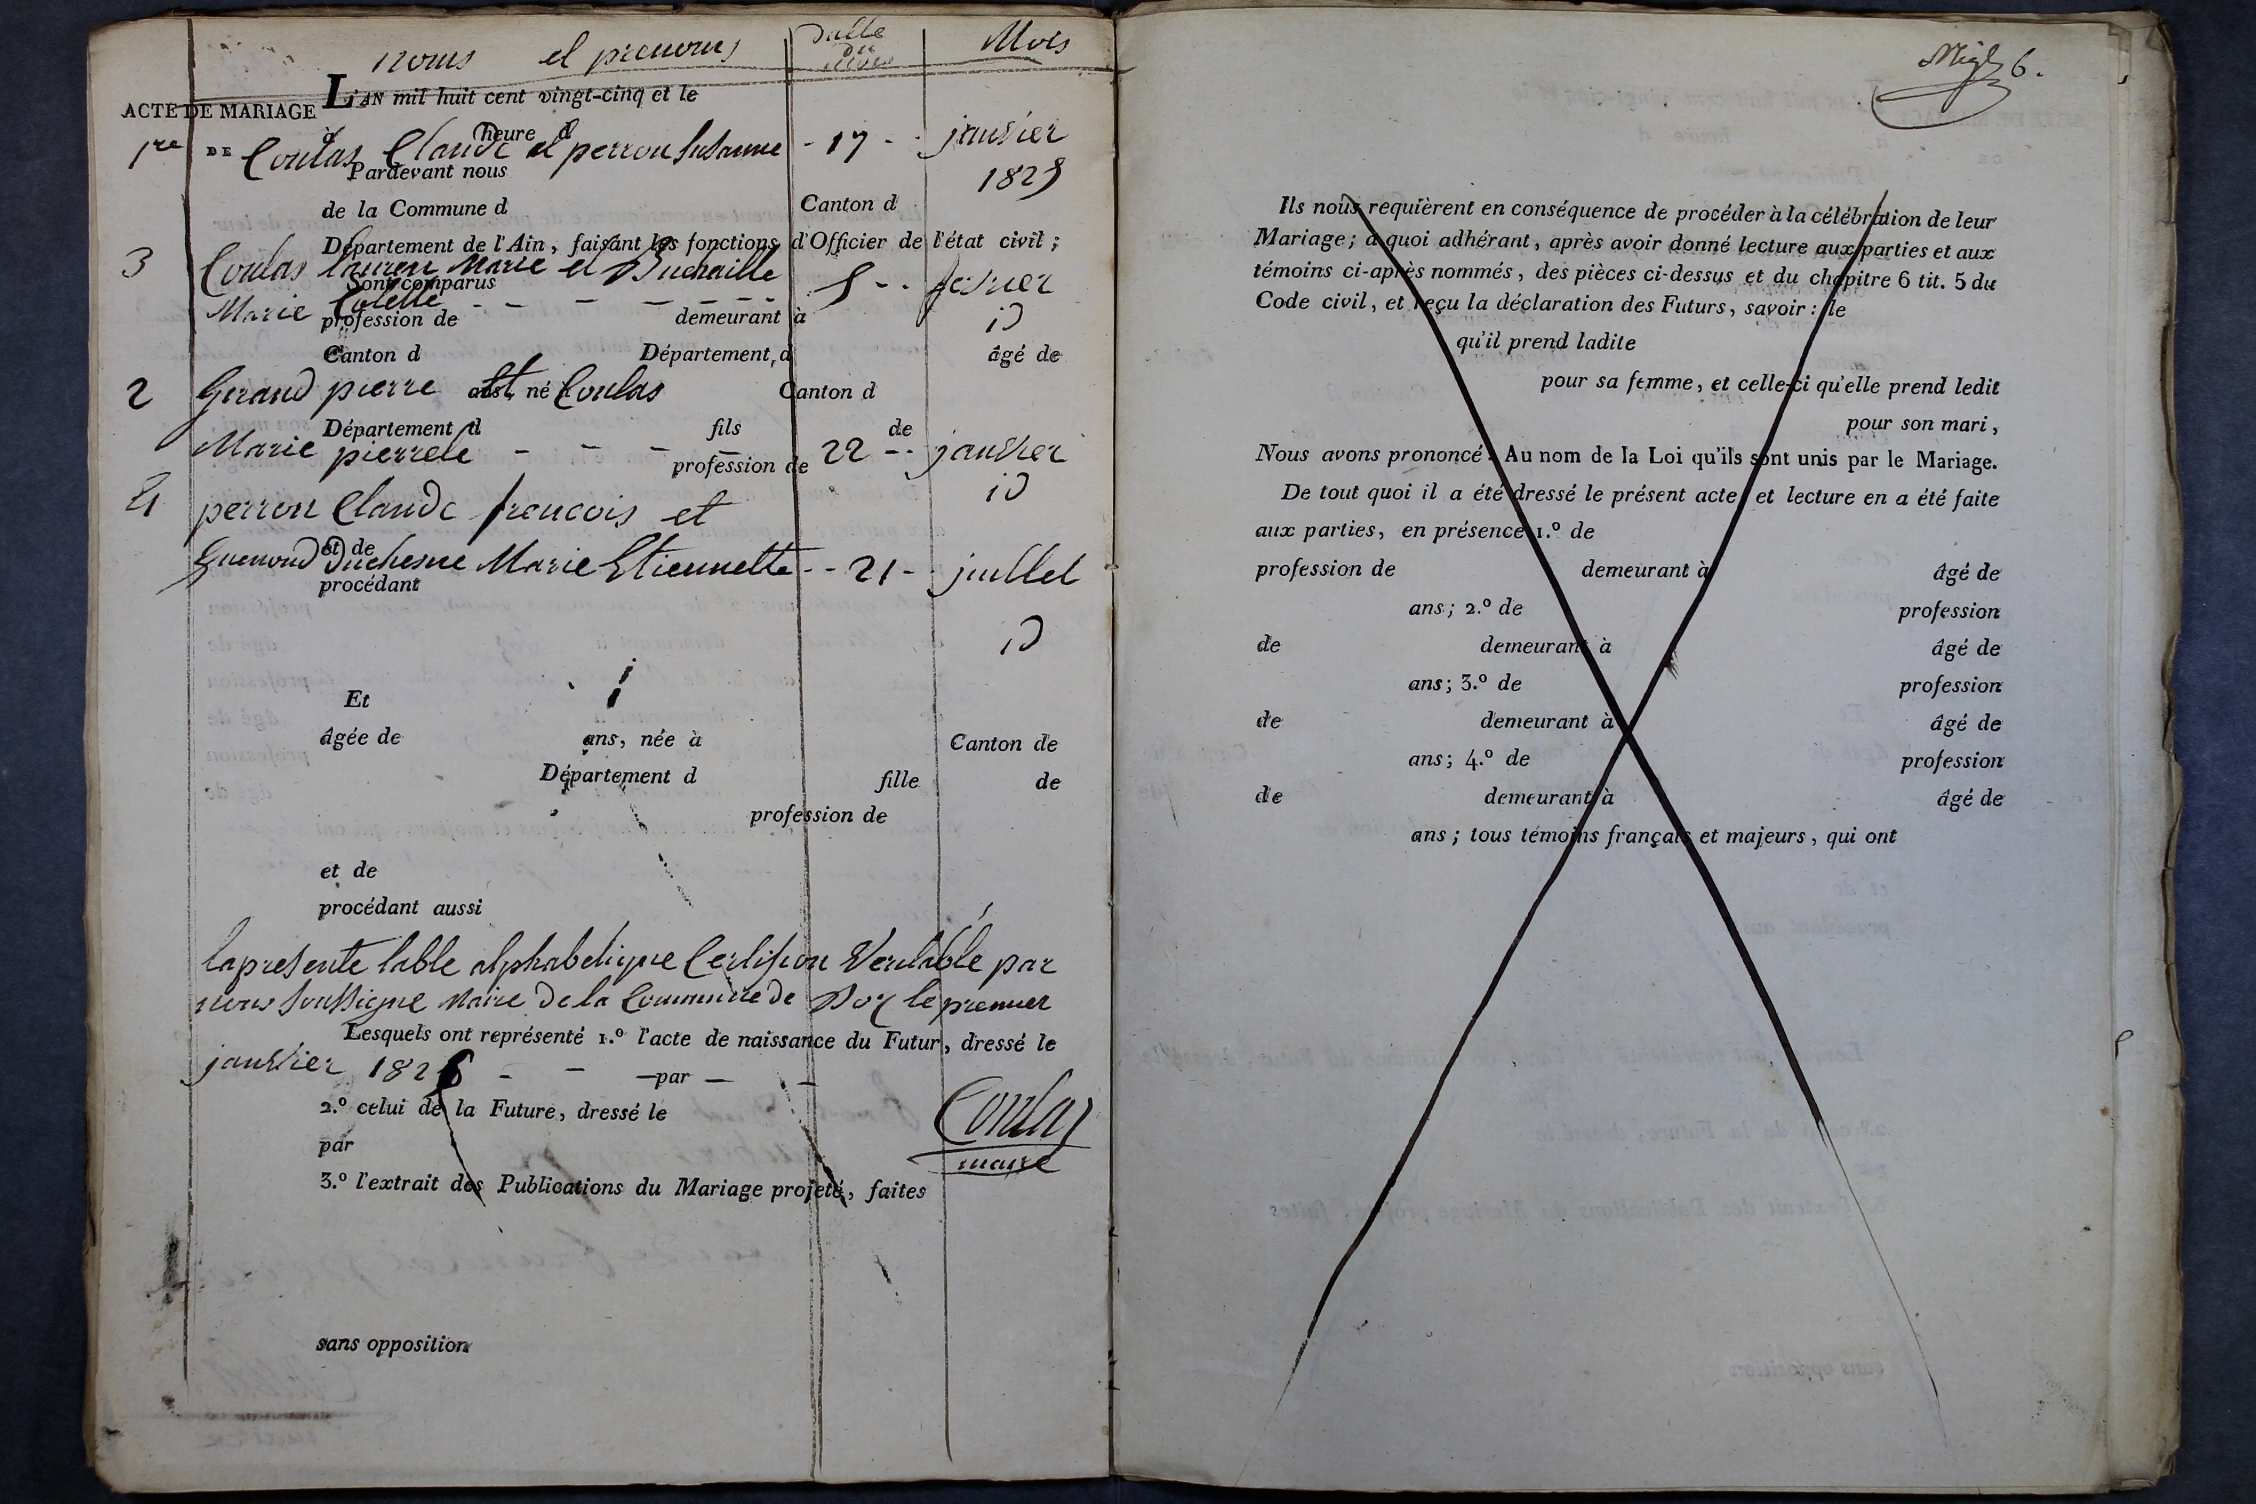 noms et prenoms datte du mois Mois
L'AN mil huit cent vingt-cinq et le
ACTE DE MARIAGE
à heure d
1re DE Coulas Claude et perron Susanne - 17 - janvier
Pardevant nous
1825
de la Commune d Canton d
Département de l'Ain, faisant les fonctions d'Officier de l'état civil;
3 Coulas laurent Marie et Buchaille 5 - - fevrier
Sont comparus
Marie Colette - - - - - - -
profession de demeurant à
id
Canton d Département d âgé de
2 Geraud pierre et Coulas
ans, né Canton d
Département d fils de
Marie pierrete - - - - 22 - - janvier
profession de
id
4 perron Claude francois et
et de
Guenond Duchesne Marie Etiennette - - 21 - - juillet
procédant
id
Et
âgée de ans, née à Canton de
Département d fille de
profession de
et de
procédant aussi
la presente table alphabetique Certifion Veritable par
nous Soussigne Maire de la Commune de Dor le premier
Lesquels ont représenté 1.º l'acte de naissance du Futur, dressé le
janvier 1826 - - - par - -
2.º celui de la Future, dressé le
Coulas
par
maire
3.º l'extrait des Publications du Mariage projeté, faites
sans opposition
6.
Ils nous requièrent en conséquence de procéder à la célébration de leur
Mariage; à quoi adhérant, après avoir donné lecture aux parties et aux
témoins ci-après nommés, des pièces ci-dessus et du chapitre 6 tit. 5 du
Code civil, et reçu la déclaration des Futurs, savoir: le
qu'il prend ladite
pour sa femme, et celle-ci qu'elle prend ledit
pour son mari,
Nous avons prononcé: Au nom de la Loi qu'ils sont unis par le Mariage.
De tout quoi il a été dressé le présent acte, et lecture en a été faite
aux parties, en présence 1.º de
profession de demeurant à âgé de
ans; 2.º de profession
de demeurant à âgé de
ans; 3.º de profession
de demeurant à âgé de
ans; 4.º de profession
de demeurant à âgé de
ans; tous témoins français et majeurs, qui ont